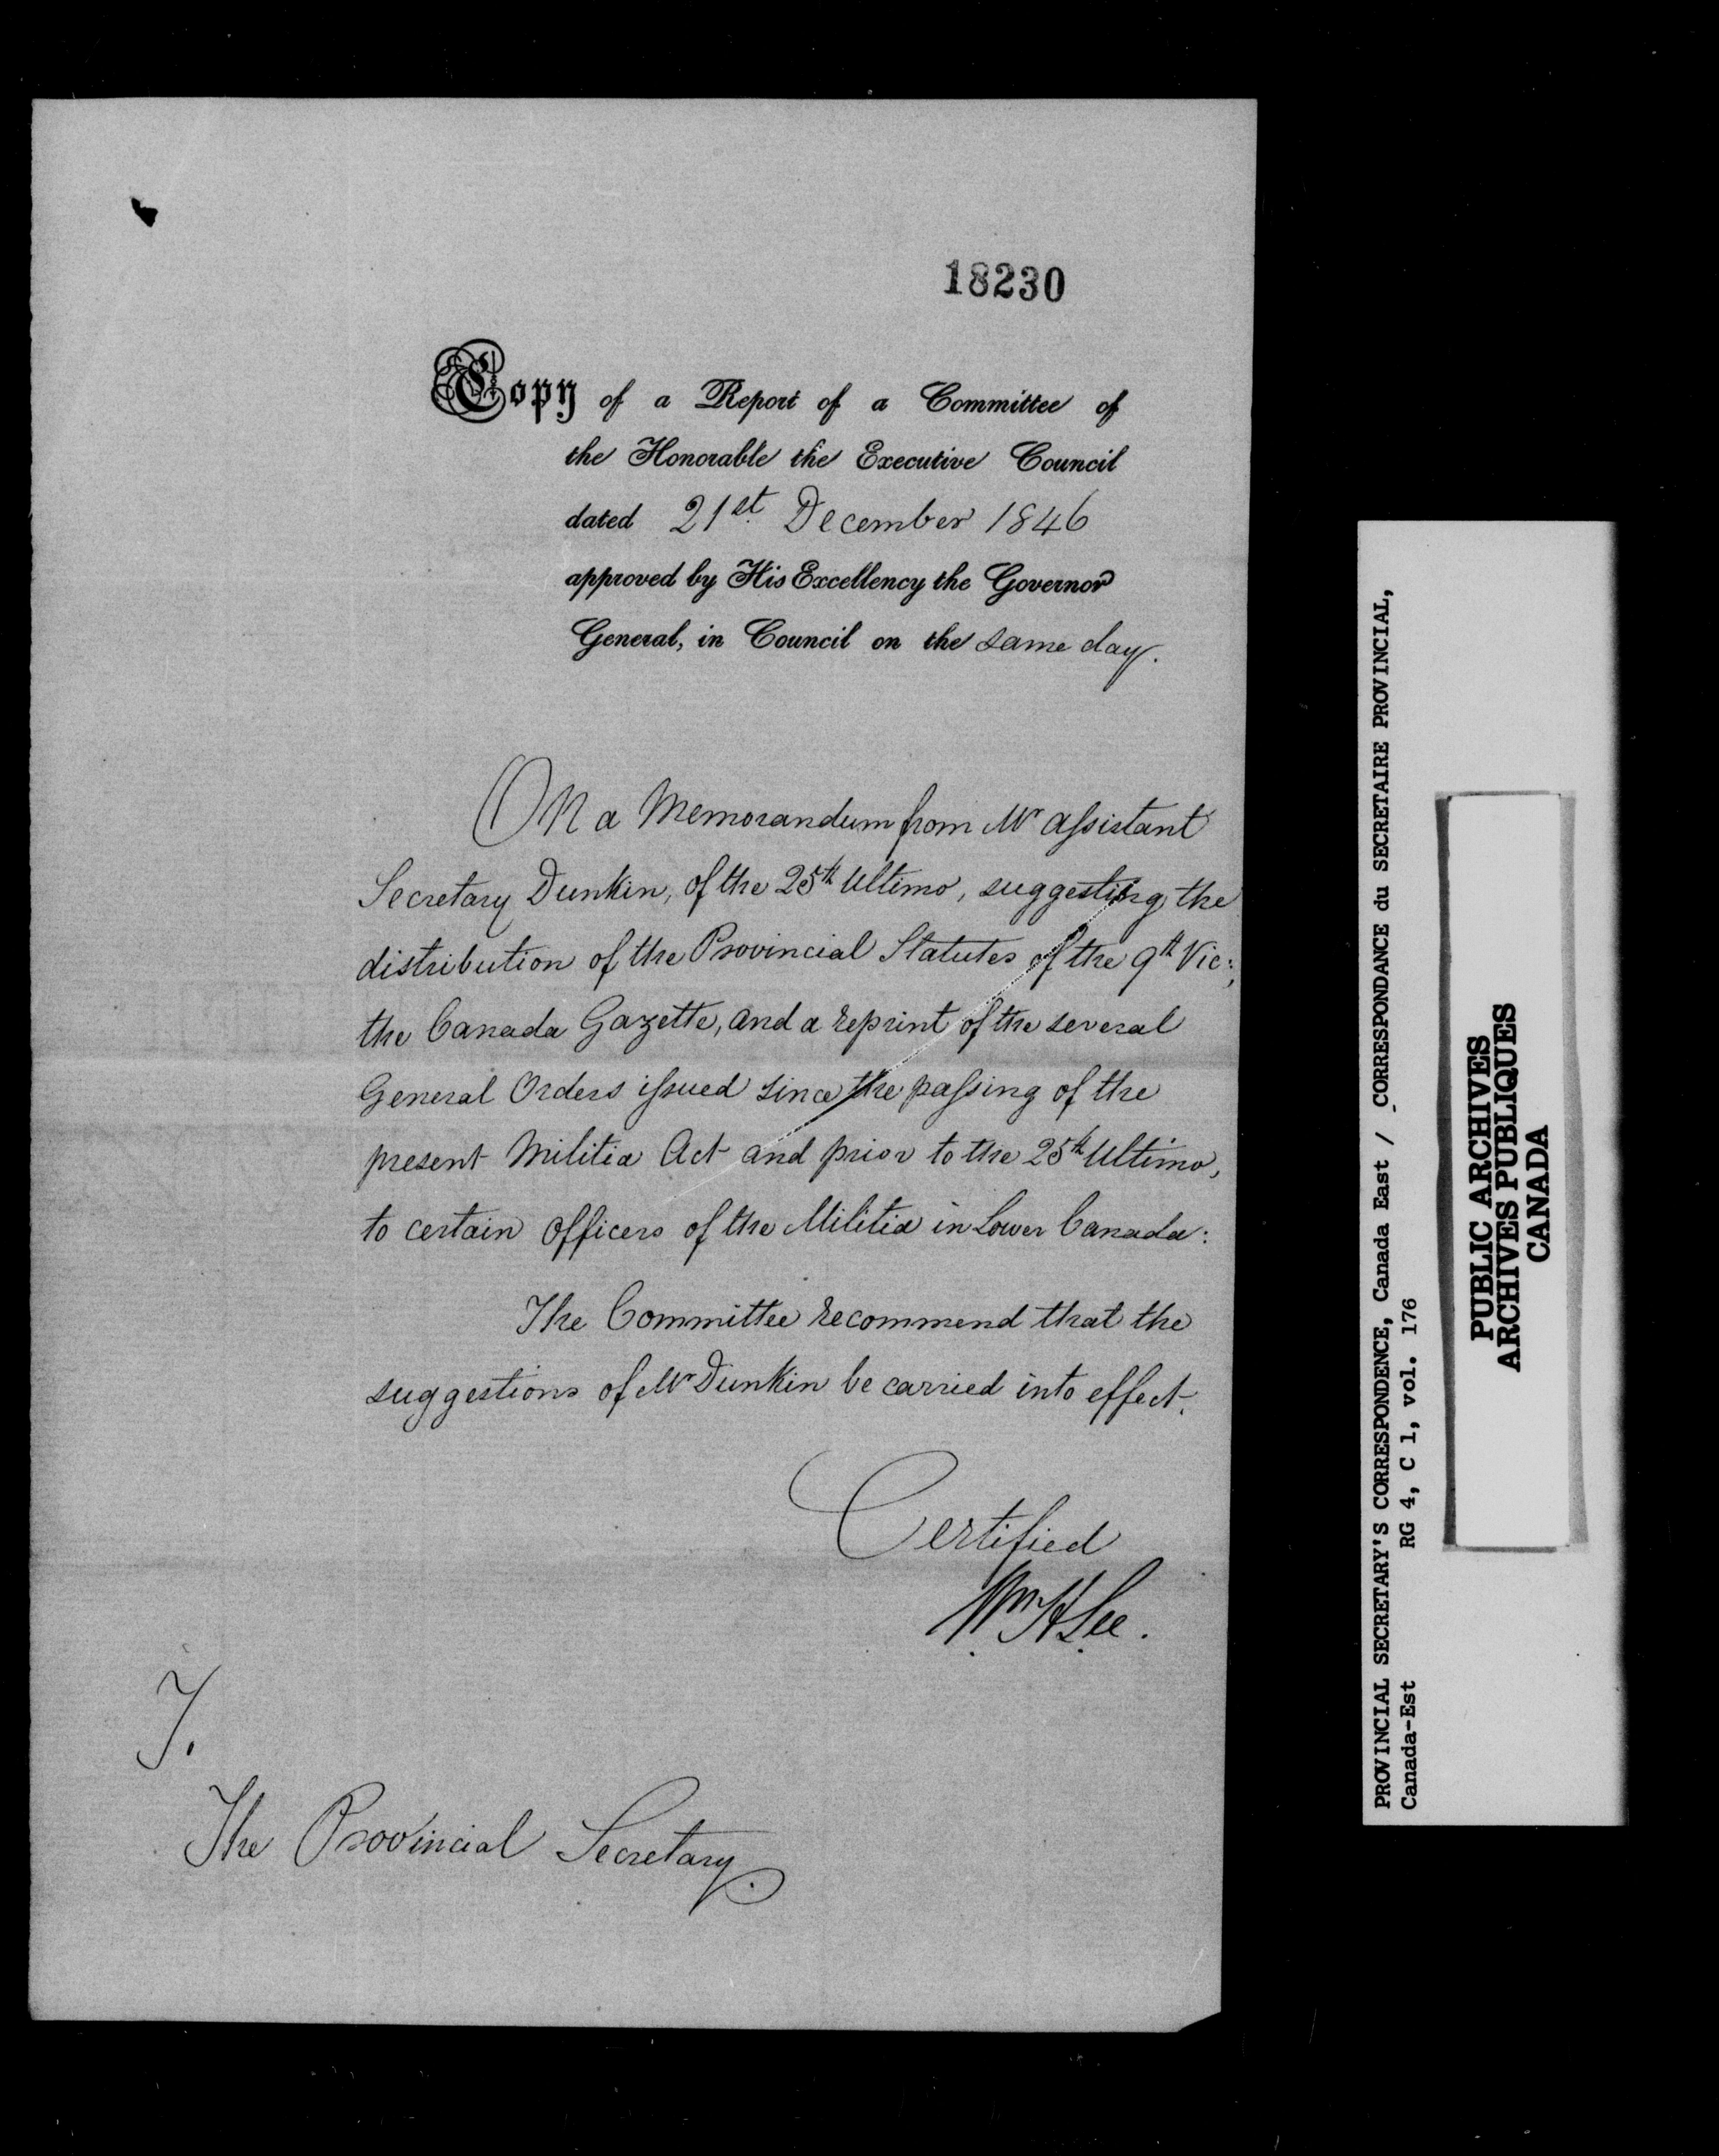 18230
Copy of a Report of a Committee of
the Honorable the Executive Council
dated 21st December 1846
approved by His Excellency the Governor
General, in Council on the same day.
On a Memorandum from Mr Assistant
Secretary Dunkin, of the 25th Ultimo, suggesting the
distribution of the Provincial Statutes of the 9th Vic:,
the Canada Gazette, and a reprint of the several
General Orders issued since the passing of the
present Militia Act and prior to the 25th Ultimo,
to certain Officers of the Militia in Lower Canada:
The Committee recommend that the
suggestions of Mr Dunkin be carried into effect.
Certified
Wm H Lee.
The Provincial Secretary.
PROVINCIAL SECRETARY'S CORRESPONDENCE, Canada East / CORRESPONDANCE du SECRETAIRE PROVINCIAL,
Canada-Est RG 4, C 1, vol. 176
PUBLIC ARCHIVES
ARCHIVES PUBLIQUES
CANADA